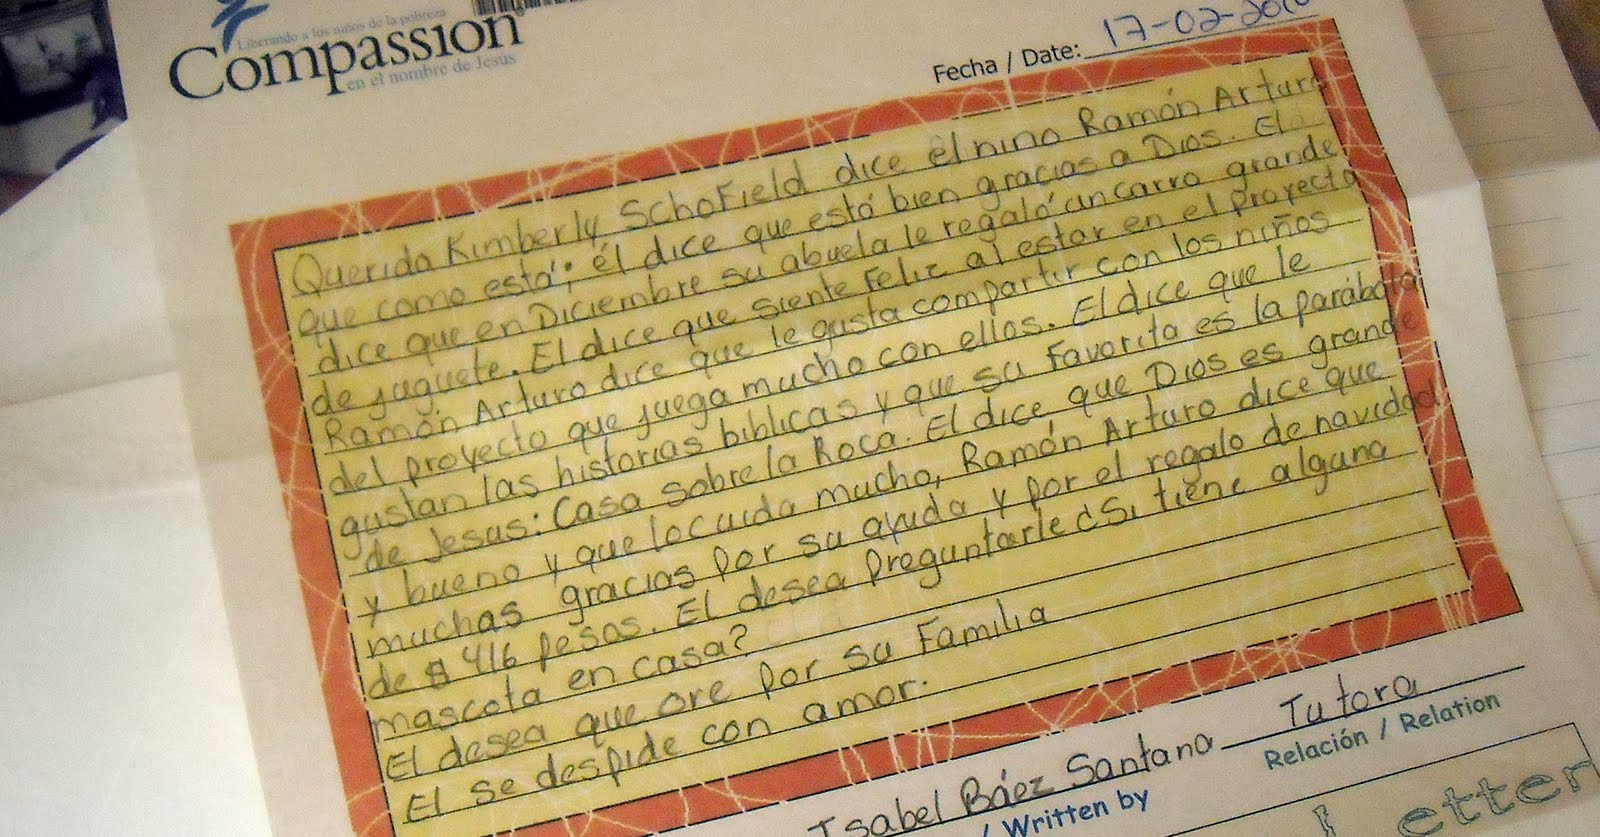 Liberando a los niños de la pobreza
Compassion
en el nombre de Jesús
Fecha / Date: 17-02-2010
Querida Kimberly Schofield dice el nino Ramón Arturo
que como está; él dice que está bien gracias a Dios. El
dice que en Diciembre su abuela le regaló un carro grande
de juguete. El dice que siente Feliz al estar en el proyecto
Ramón Arturo dice que le gusta compartir con los niños
del proyecto que juega mucho con ellos. El dice que le
gustan las historias biblicas y que su favorita es la parábola
de Jesus: Casa sobre la Roca. El dice que Dios es grande
y bueno y que lo cuida mucho, Ramón Arturo dice que
muchas gracias por su ayuda y por el regalo de navidad
de $ 416 pesos. El desea preguntarle ¿Si tiene alguna
mascota en casa?
El desea que ore por su Familia
El se despide con amor.
Isabel Báez Santana Tutora
/ Written by Relación / Relation
Letter